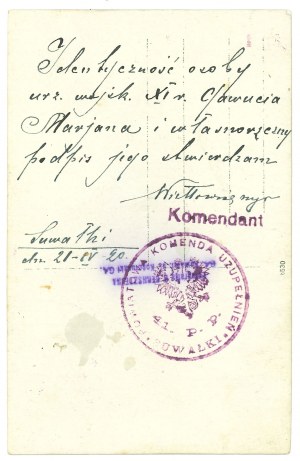 Identyczność osoby
urz. wojsk. XI r. Gawucia
Marjana i własnoręczny
podpis jego stwierdzam
Komendant
Suwałki
dn. 21-IV 20.
POWIATOWA KOMENDA UZUPEŁNIEŃ
41. p. p.
SUWAŁKI
1030